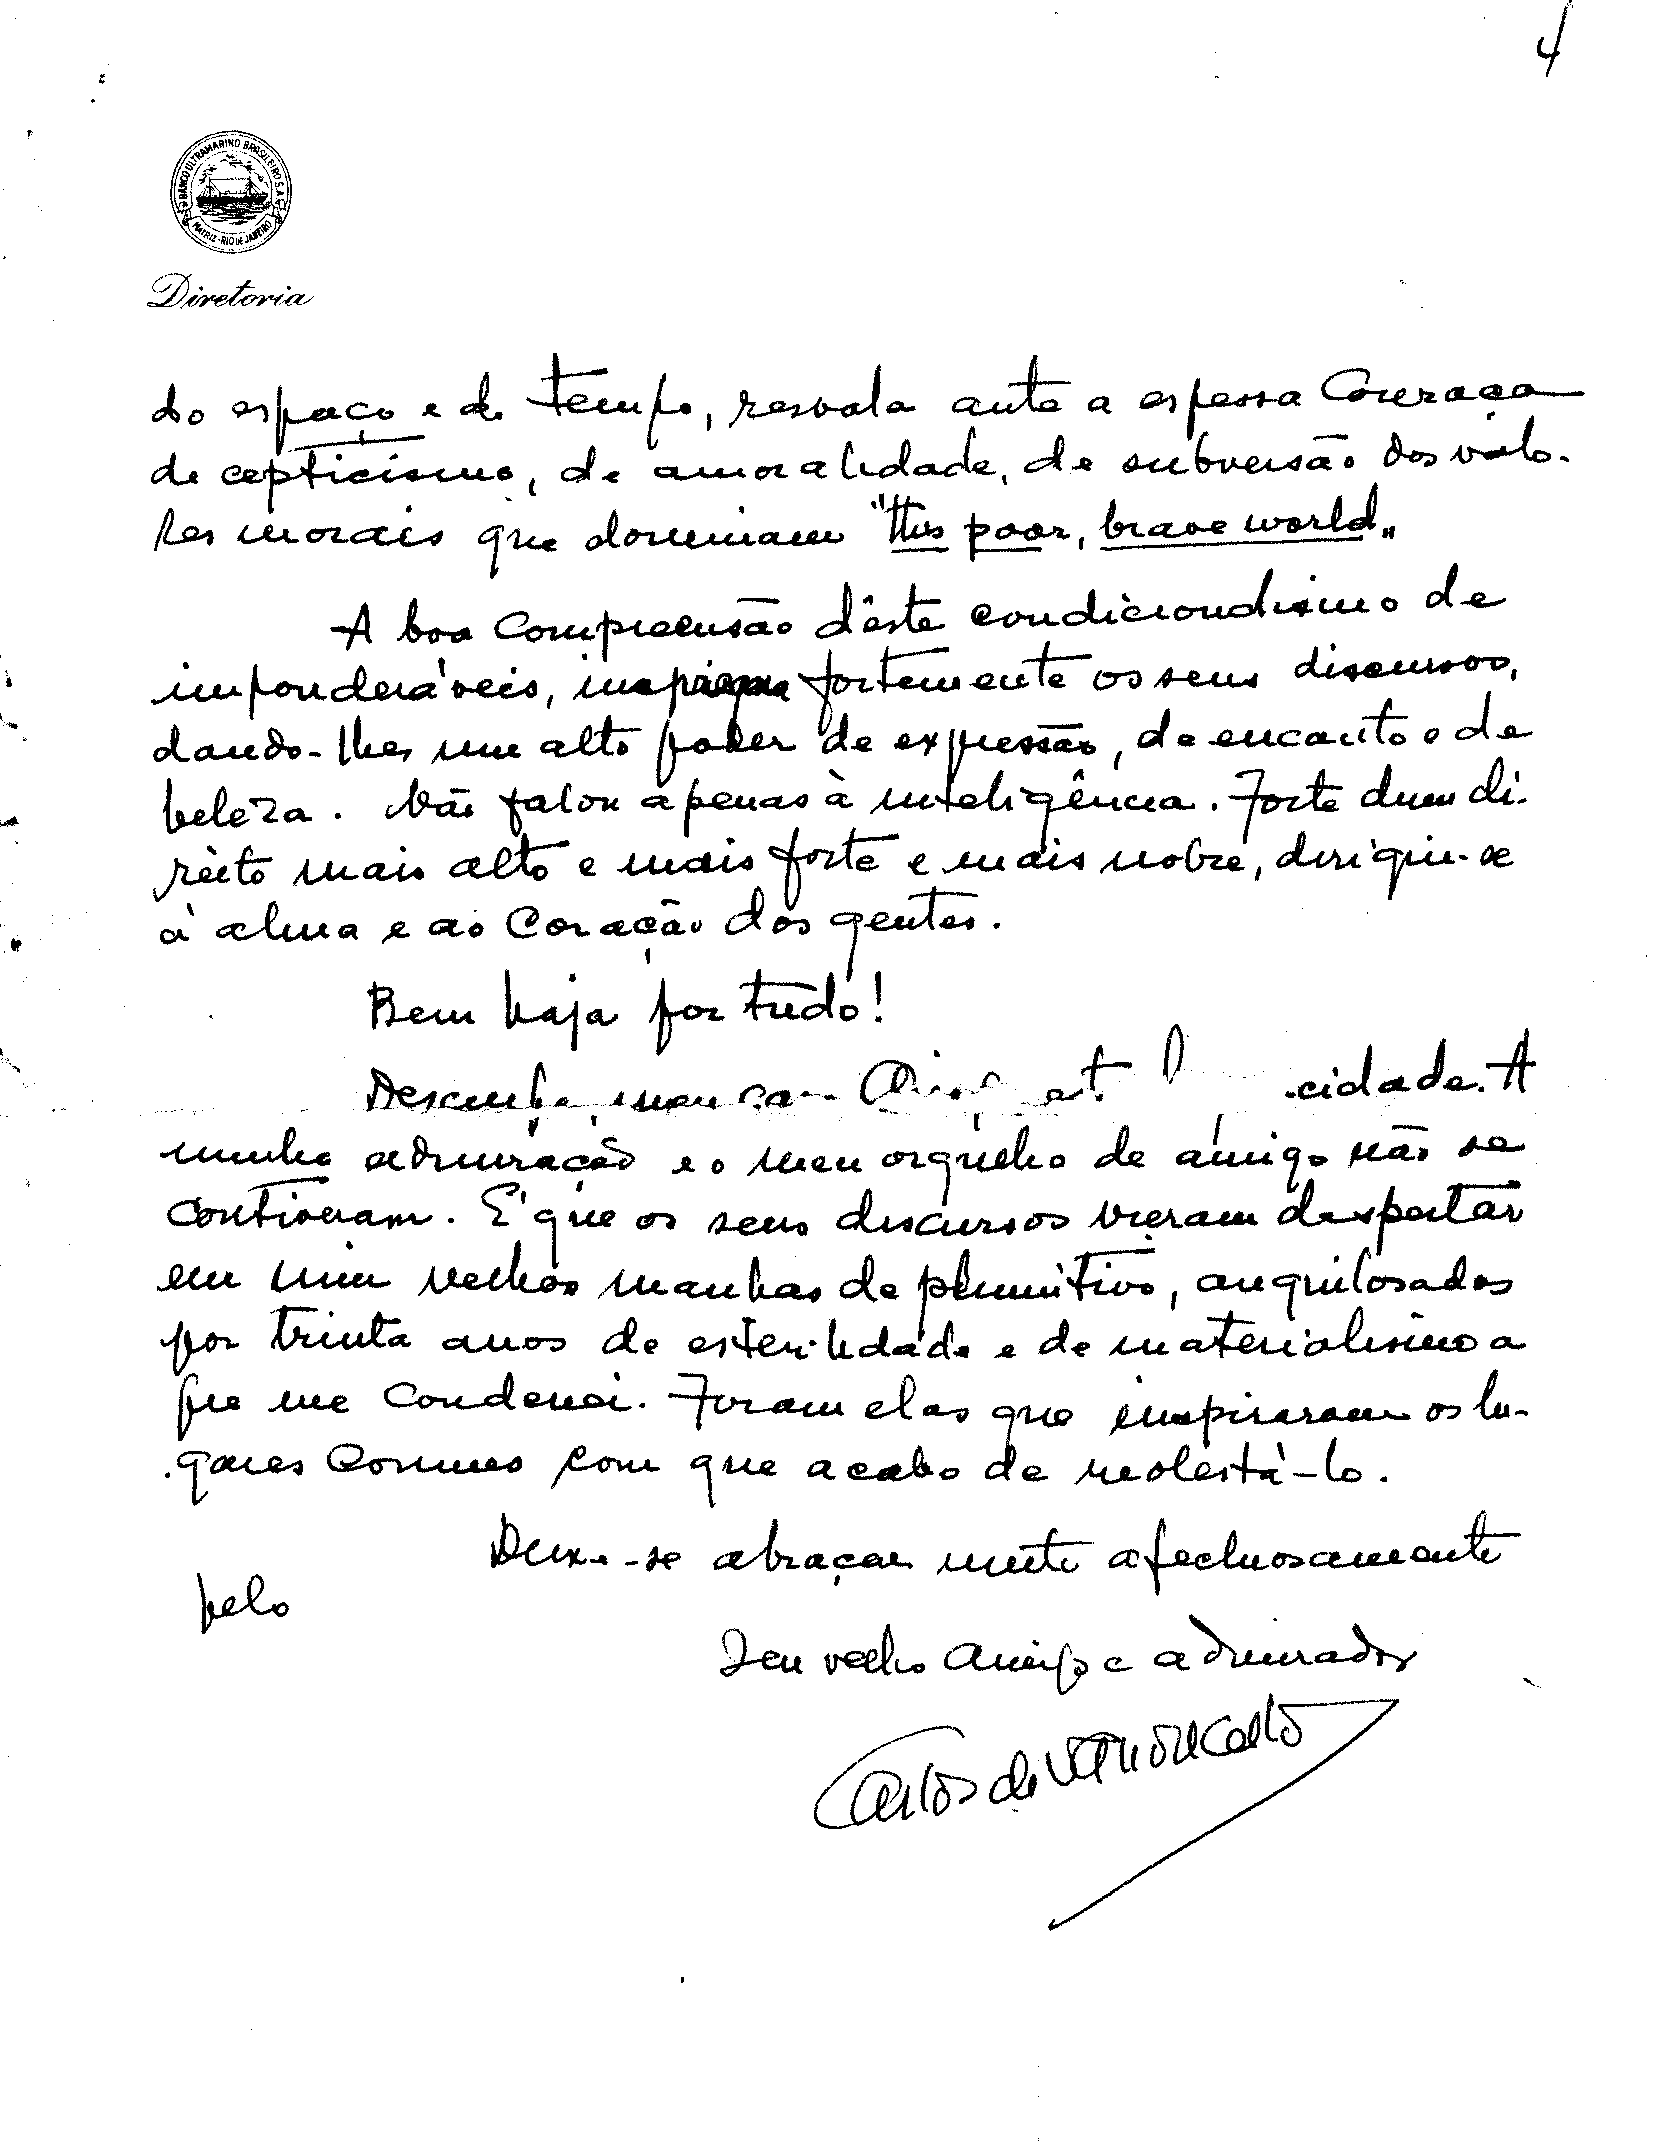 4
BANCO ULTRAMARINO BRASILEIRO S.A.
MATRIZ - RIO DE JANEIRO
Diretoria
do espaço e do tempo, resvala ante a espessa Couraça
de cepticismo, de amoralidade, de subversão dos valo-
res morais que dominam "this poor, brave world„
A boa Compreensão dêste condicionalismo de
imponderáveis, fortemente os seus discursos,
dando-lhes um alto poder de expressão, de encanto e de
beleza. Não falou apenas à inteligência. Forte dum di-
reito mais alto e mais forte e mais nobre, dirigiu-se
à alma e ao Coração das gentes.
Bem haja por tudo!
Desculpe, meu caro cidade. A
minha admiração e o meu orgulho de amigo não se
contiveram. É que os seus discursos vieram despertar
em mim velhas manhas de plumitivo, anquilosadas
por trinta anos de esterilidade e de materialismo a
que me condenei. Foram elas que inspiraram os lu-
gares Comuns com que acabo de molestá-lo.
Deixe-se abraçar muito afectuosamente
pelo
Seu velho Amigo e admirador
Carlos de